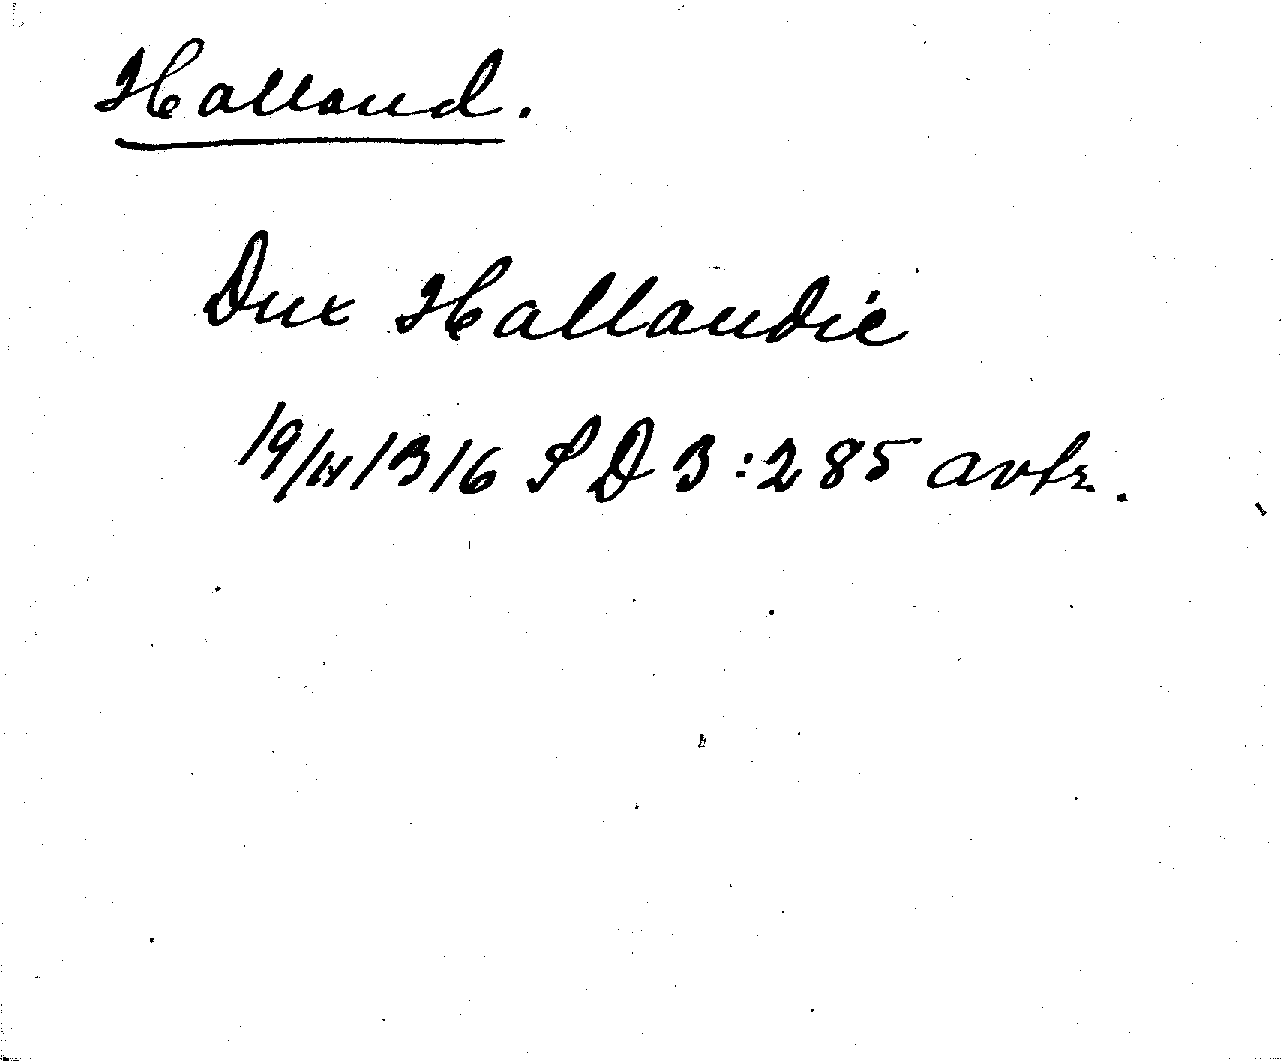 Halland.
Dux Hallandie
19/IV 1316 SD 3:285 avtr.